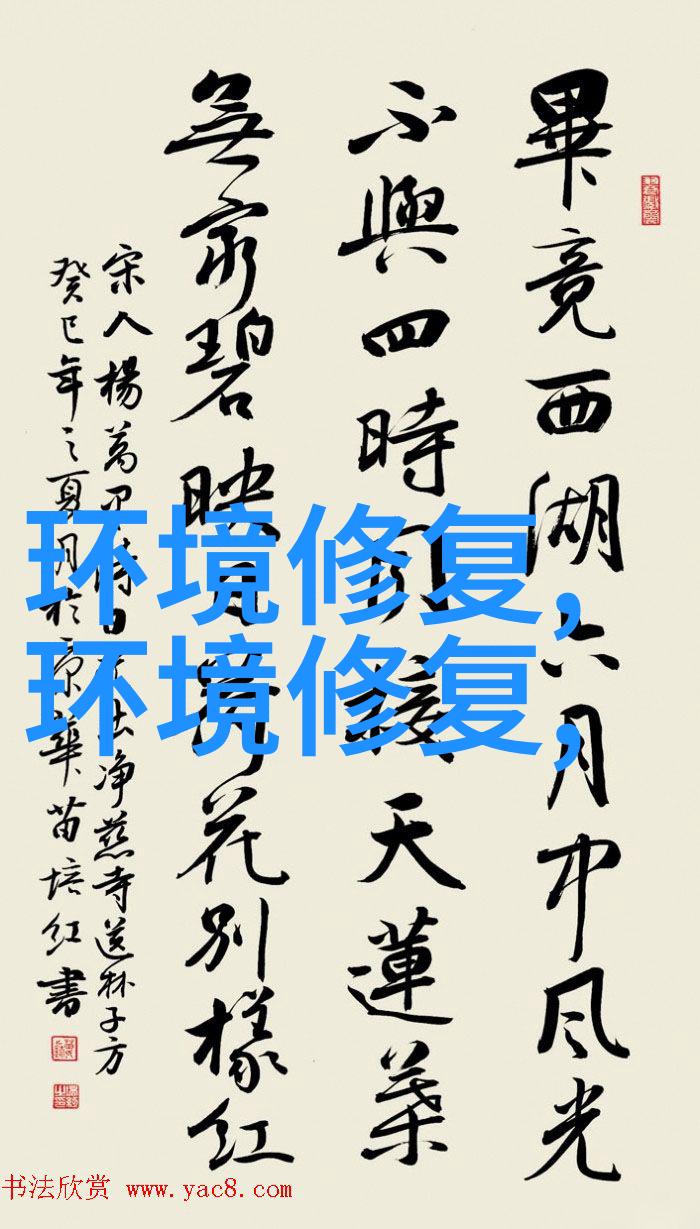 畢竟西湖六月中风光
不與四時同接天蓮葉
無窮碧映日荷花別樣红
宋人楊萬里诗出净慈寺送林子方
癸巳年之夏月於京華苗培红書
环境修复,
环境修复,
书法欣赏 www.yac8.com